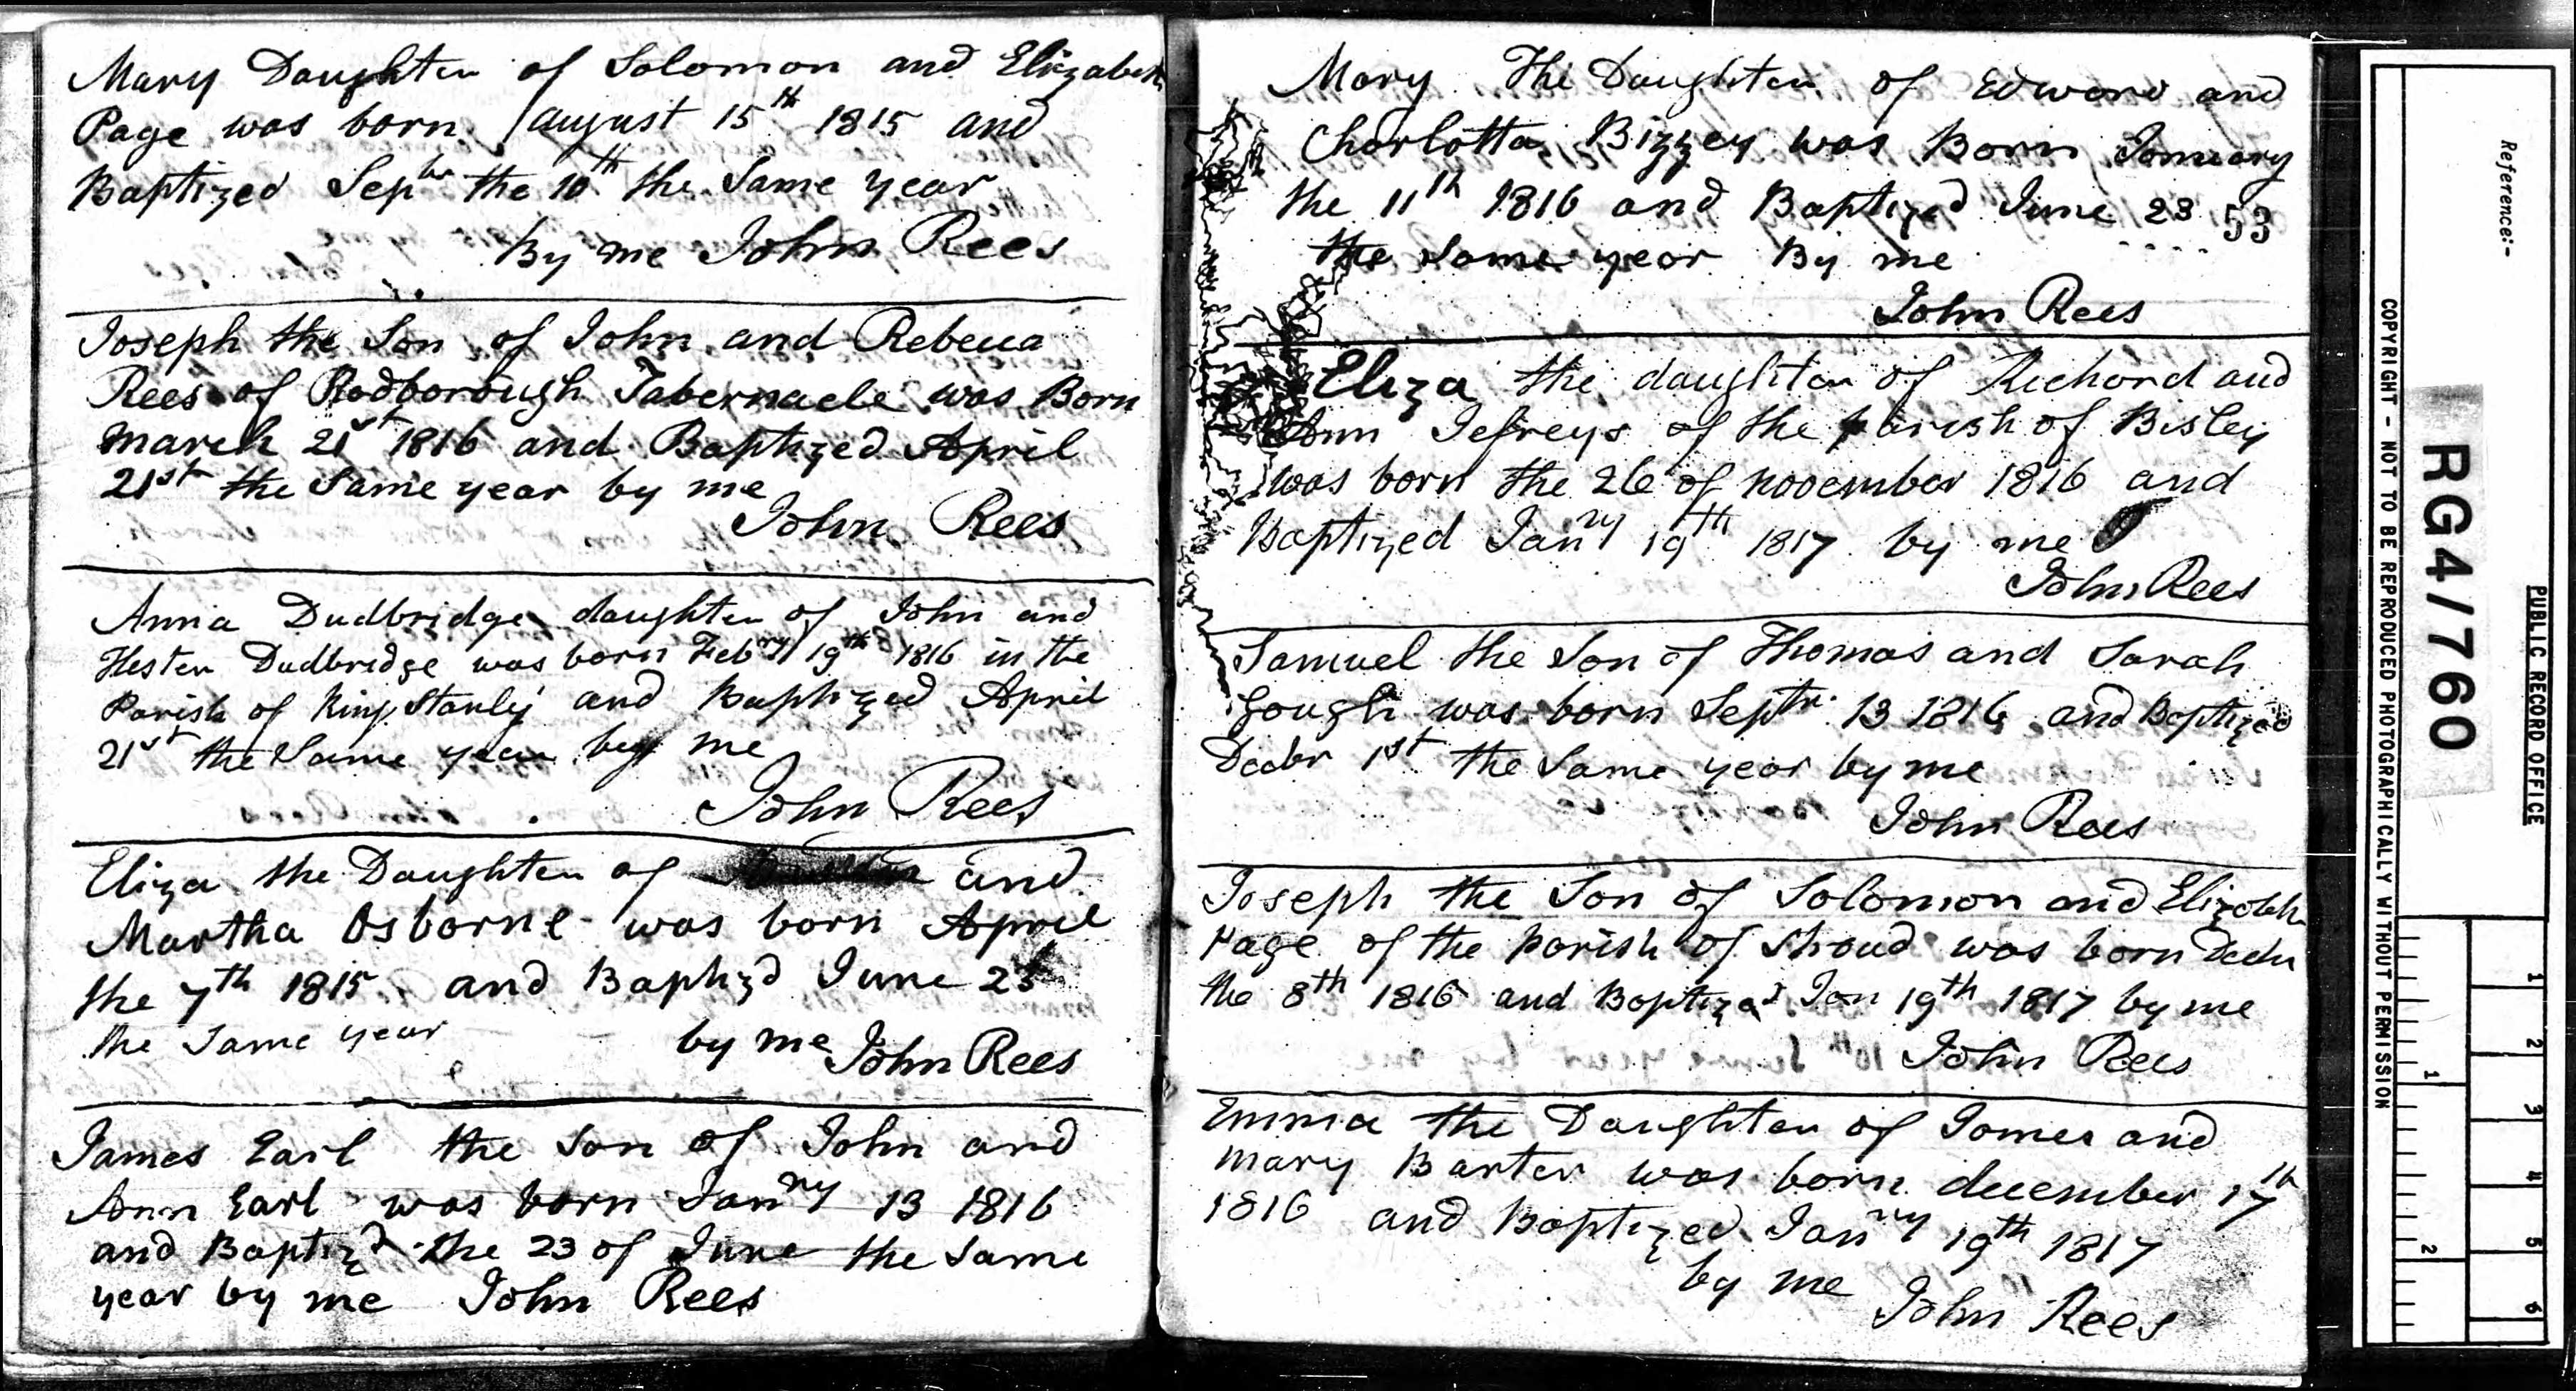 Mary Daughter of Solomon and Elizabeth
Page was born August 15th 1815 and
Baptized Sepbr the 10th the Same year
By me John Rees
Joseph the Son of John and Rebecca
Rees of Rodborough Tabernacle was Born
March 21st 1816 and Baptized April
21st the Same year by me
John Rees
Anna Dudbridge daughter of John and
Hester Dudbridge was born Febry 19th 1816 in the
Parish of King Stanley and Baptized April
21st the Same year by me
John Rees
Eliza the Daughter of and
Martha Osborne was born April
the 7th 1815 and Baptizd June 25
the Same year by me John Rees
James Earl the Son of John and
Ann Earl was born Janry 13 1816
and Baptizd the 23 of June the Same
year by me John Rees
Mary The Daughter of Edward and
Charlotta Bizzey was Born January
the 11th 1816 and Baptized June 23
53
the Same year By me
John Rees
Eliza the daughter of Richard and
Ann Jefreys of the parish of Bisley
was born the 26 of november 1816 and
Baptized Janry 19th 1817 by me
John Rees
Samuel the Son of Thomas and Sarah
Gough was born Septr 13 1816 and Baptized
Decbr 1st the Same year by me
John Rees
Joseph the Son of Solomon and Elizabth
Page of the parish of Stroud was born Decbr
the 8th 1816 and Baptizd Jan 19th 1817 by me
John Rees
Emma the Daughter of James and
Mary Barter was born december 17th
1816 and Baptized Janry 19th 1817
by me John Rees
Reference:-
RG4/760
PUBLIC RECORD OFFICE
COPYRIGHT - NOT TO BE REPRODUCED PHOTOGRAPHICALLY WITHOUT PERMISSION
1 2 3 4 5 6
1 2